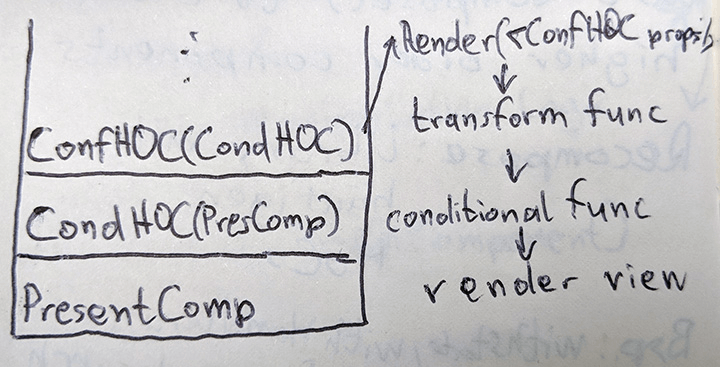 ConfHOC(CondHOC)
CondHOC(PresComp)
PresentComp
Render(<ConfHOC props/>)
transform func
conditional func
render view